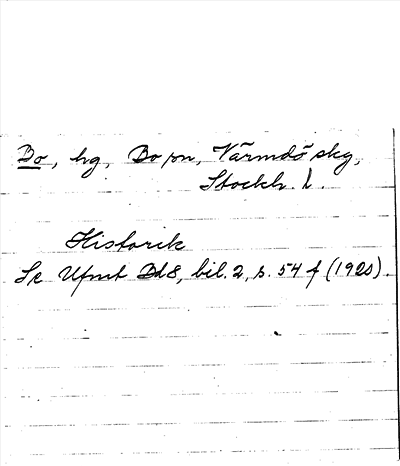 Bo, hg, Bo sn, Värmdö skg,
Stockh. l.
Historik
Se Ufmt Bd 8, bil. 2, s. 54 f (1920).